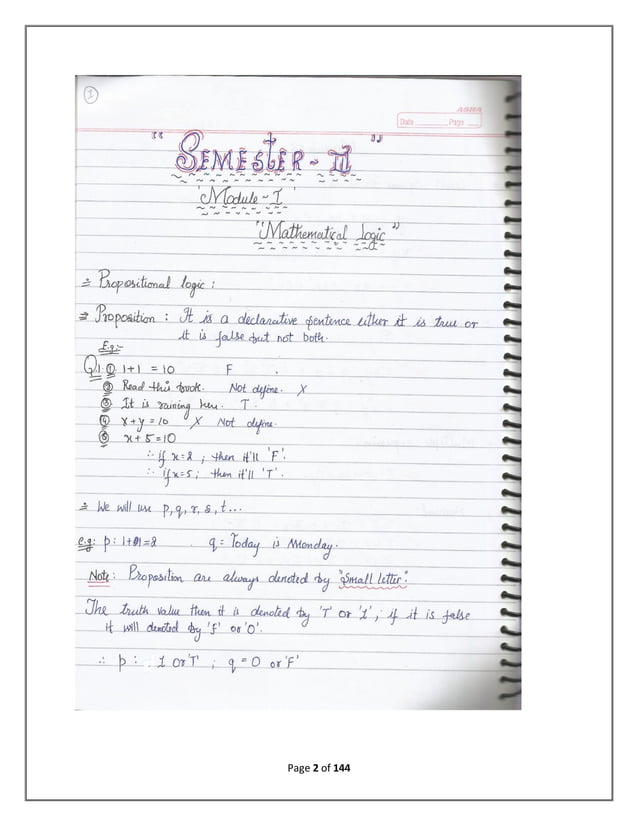 1
ASHA
Date Page
"SEMESTER - III"
'Module - I'
"Mathematical logic"
⇒ Propositional logic :
⇒ Proposition : It is a declarative sentence either it is true or
it is false but not both.
E.g:-
Q.1. ① 1+1 = 10 F .
② Read this book. Not define. X
③ It is raining here. T.
④ x+y = 10 X Not define.
⑤ x+5 = 10
∴ if x=2 ; then it'll 'F'.
∴ if x=5 ; then it'll 'T'.
⇒ We will use p, q, r, s, t...
e.g: p: 1+1=2 . q = Today is Monday.
Note: Proposition are always denoted by "Small letter".
The truth value then it is denoted by 'T' or '1', if it is false
it will denoted by 'f' or 'O'.
∴ p : 1 or 'T' ; q = 0 or 'F'
Page 2 of 144